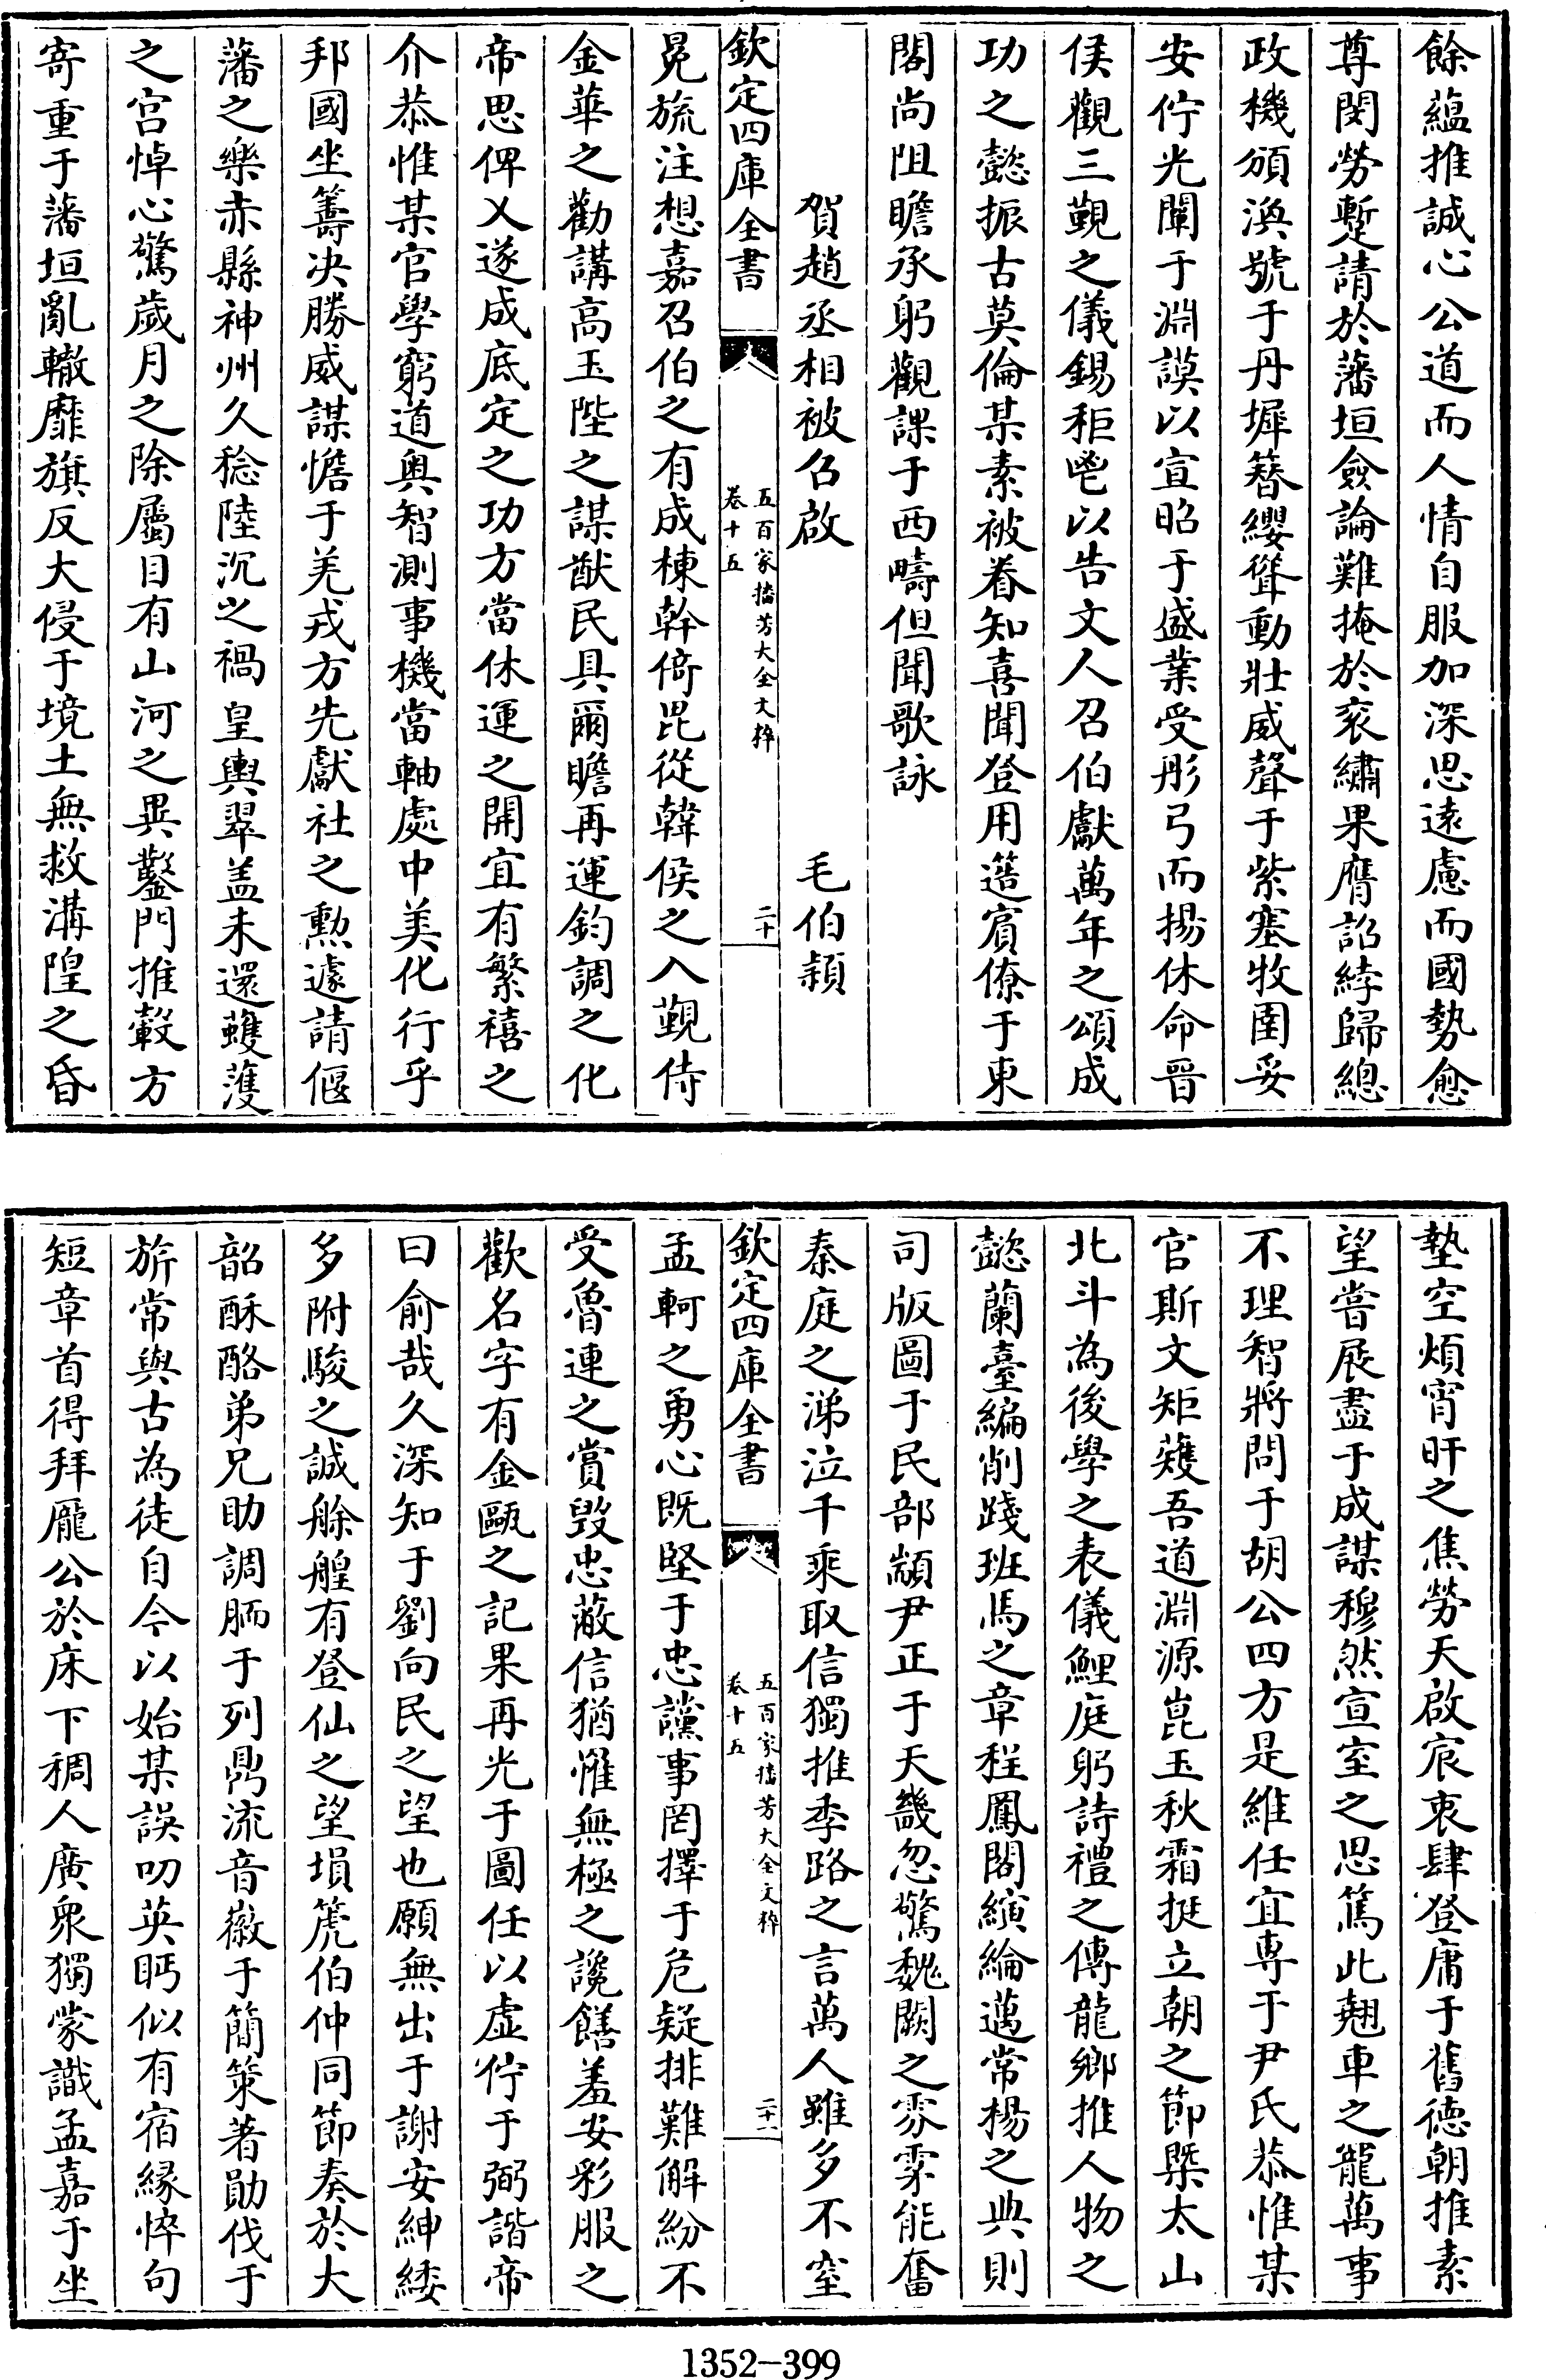 餘藴推誠心公道而人情自服加深思逺慮而國勢愈
尊閔勞蹔請於藩垣僉論難掩於衮繡果膺詔綍歸緫
政機頒渙號于丹墀簪纓聳動壯威聲于紫塞牧圉妥
安佇光闡于淵謨以宣昭于盛業受彤弓而揚休命晉
侯觀三覲之儀錫秬鬯以告文人召伯獻萬年之頌成
功之懿振古莫倫某素被眷知喜聞登用簉賔僚于東
閣尚阻瞻承躬觀課于西疇但聞歌詠
賀趙丞相被召啟 毛伯頴
欽定四庫全書 五百家播芳大全文粹 卷十五 二十
冕旒注想嘉召伯之有成棟幹倚毘從韓侯之入覲侍
金華之勸講高玉陛之謀猷民具爾瞻再運鈞調之化
帝思俾乂遂成底定之功方當休運之開宜有繁禧之
介恭惟某官學窮道奥智測事機當軸處中美化行乎
邦國坐籌决勝威謀憺于羌戎方先獻社之勲遽請偃
藩之樂赤縣神州久稔陸沉之禍皇輿翠盖未還蠖濩
之宫悼心驚歲月之除屬目有山河之異鑿門推轂方
寄重于藩垣亂轍靡旗反大侵于境土無救溝隍之昏
墊空煩宵旰之焦勞天啟宸衷肆登庸于舊德朝推素
望嘗展盡于成謀穆然宣室之思篤此翹車之寵萬事
不理智將問于胡公四方是維任宜專于尹氏恭惟某
官斯文矩矱吾道淵源崑玉秋霜挺立朝之節槩太山
北斗為後學之表儀鯉庭躬詩禮之傳龍鄉推人物之
懿蘭臺編削踐班馬之章程鳳閣縯綸邁常楊之典則
司版圖于民部顓尹正于天畿忽驚魏闕之雰雺能奮
秦庭之涕泣千乗取信獨推季路之言萬人雖多不窒
欽定四庫全書 五百家播芳大全文粹 卷十五 二十一
孟軻之勇心既堅于忠讜事罔擇于危疑排難解紛不
受魯連之賞毁忠蔽信猶罹無極之讒饍羞安彩服之
歡名字有金甌之記果再光于圖任以虚佇于弼諧帝
曰俞哉久深知于劉向民之望也願無出于謝安紳緌
多附駿之誠艅艎有登仙之望塤箎伯仲同節奏於大
韶酥酪弟兄助調胹于列鼎流音徽于簡策著勛伐于
旂常與古為徒自今以始某誤叨英眄似有宿緣悴句
短章首得拜龐公於床下稠人廣衆獨蒙識孟嘉于坐
1352-399